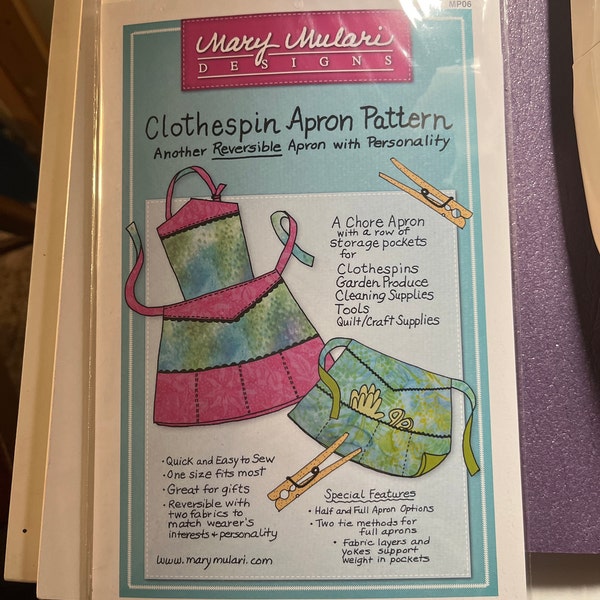 MP06
Mary Mulari
DESIGNS
Clothespin Apron Pattern
Another Reversible Apron with Personality
A Chore Apron
with a row of
storage pockets
for
Clothespins
Garden Produce
Cleaning Supplies
Tools
Quilt/Craft Supplies
• Quick and Easy to Sew
• One size fits most
• Great for gifts
• Reversible with
two fabrics to
match wearer's
interests + personality
www.marymulari.com
Special Features
• Half and Full Apron Options
• Two tie methods for
full aprons
• Fabric layers and
yokes support
weight in pockets